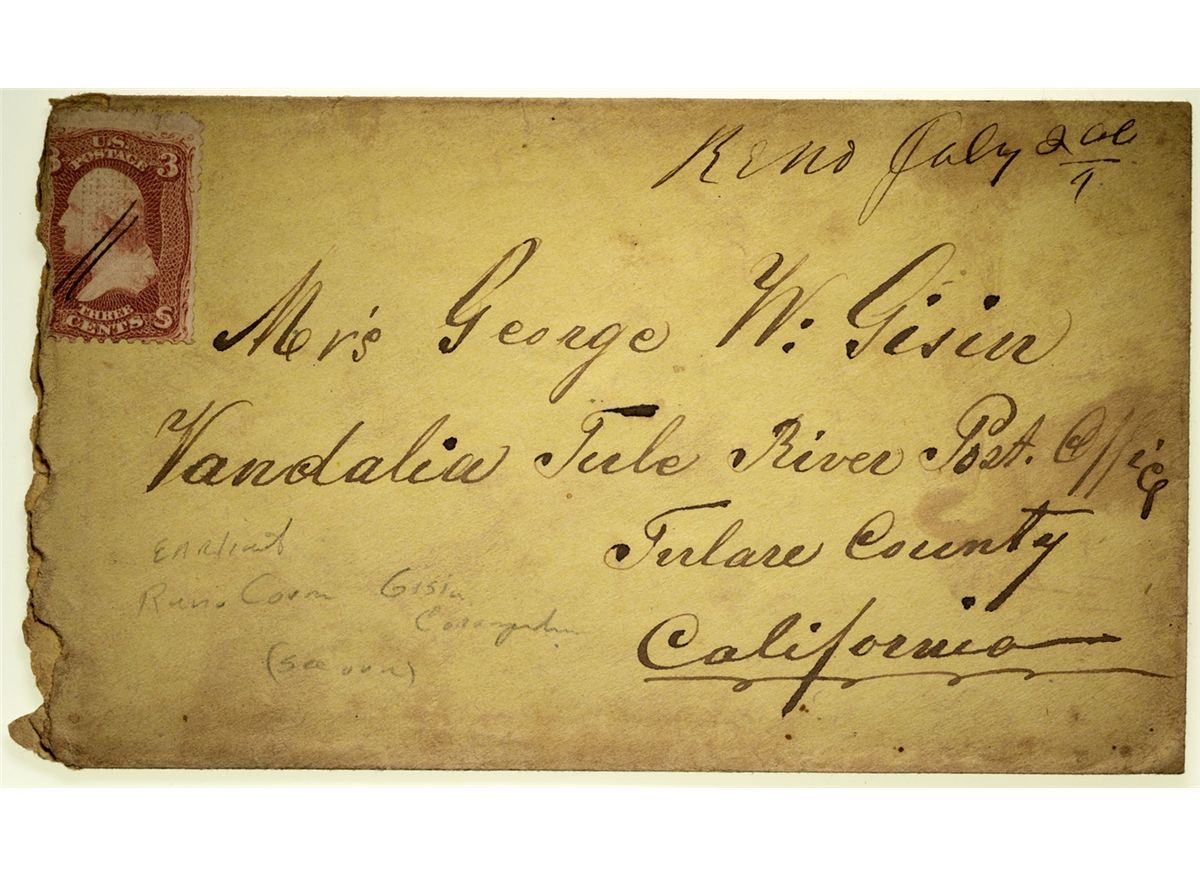 U.S.
POSTAGE
3 3
THREE
CENTS
Reno July 2
Mrs George W. Gisin
Vandalia Tule River Post. Office
Tulare County
California
Earliest
Reno Cover Gisin
(see over)